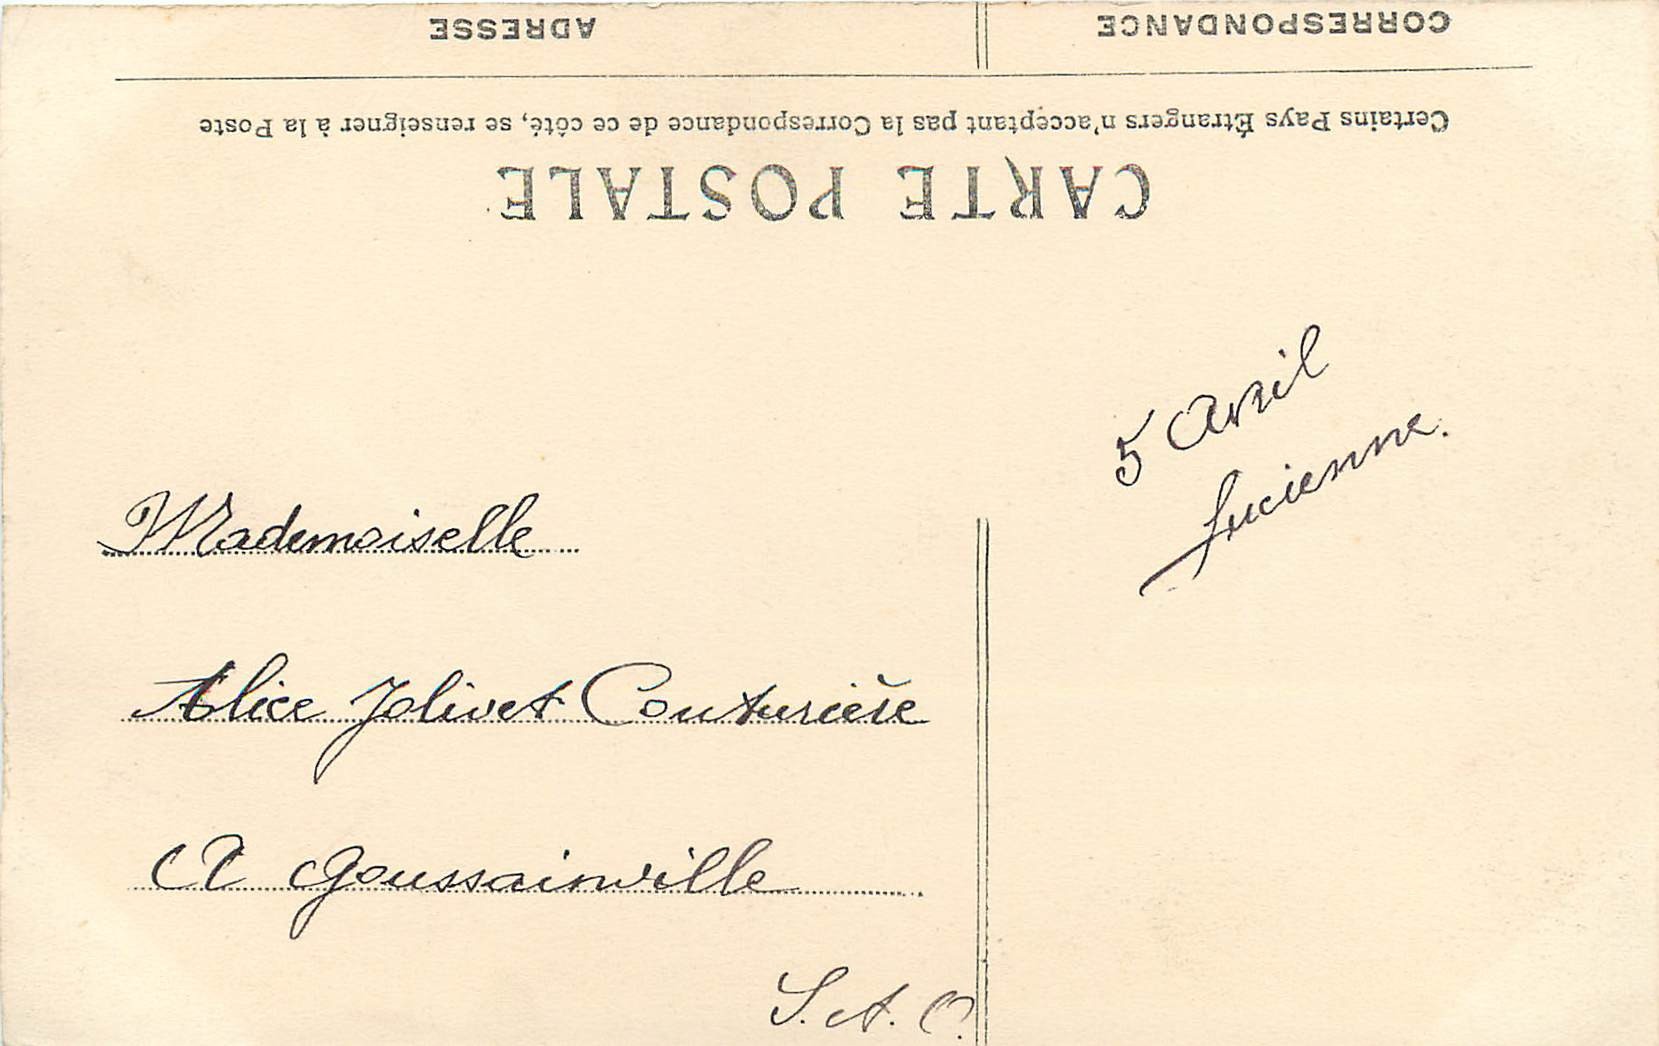 CORRESPONDANCE
ADRESSE
Certains Pays Étrangers n'acceptant pas la Correspondance de ce côté, se renseigner à la Poste
CARTE POSTALE
5 Avril
Lucienne.
Mademoiselle
Alice Jolivet Couturière
A Goussainville
S. A. O.